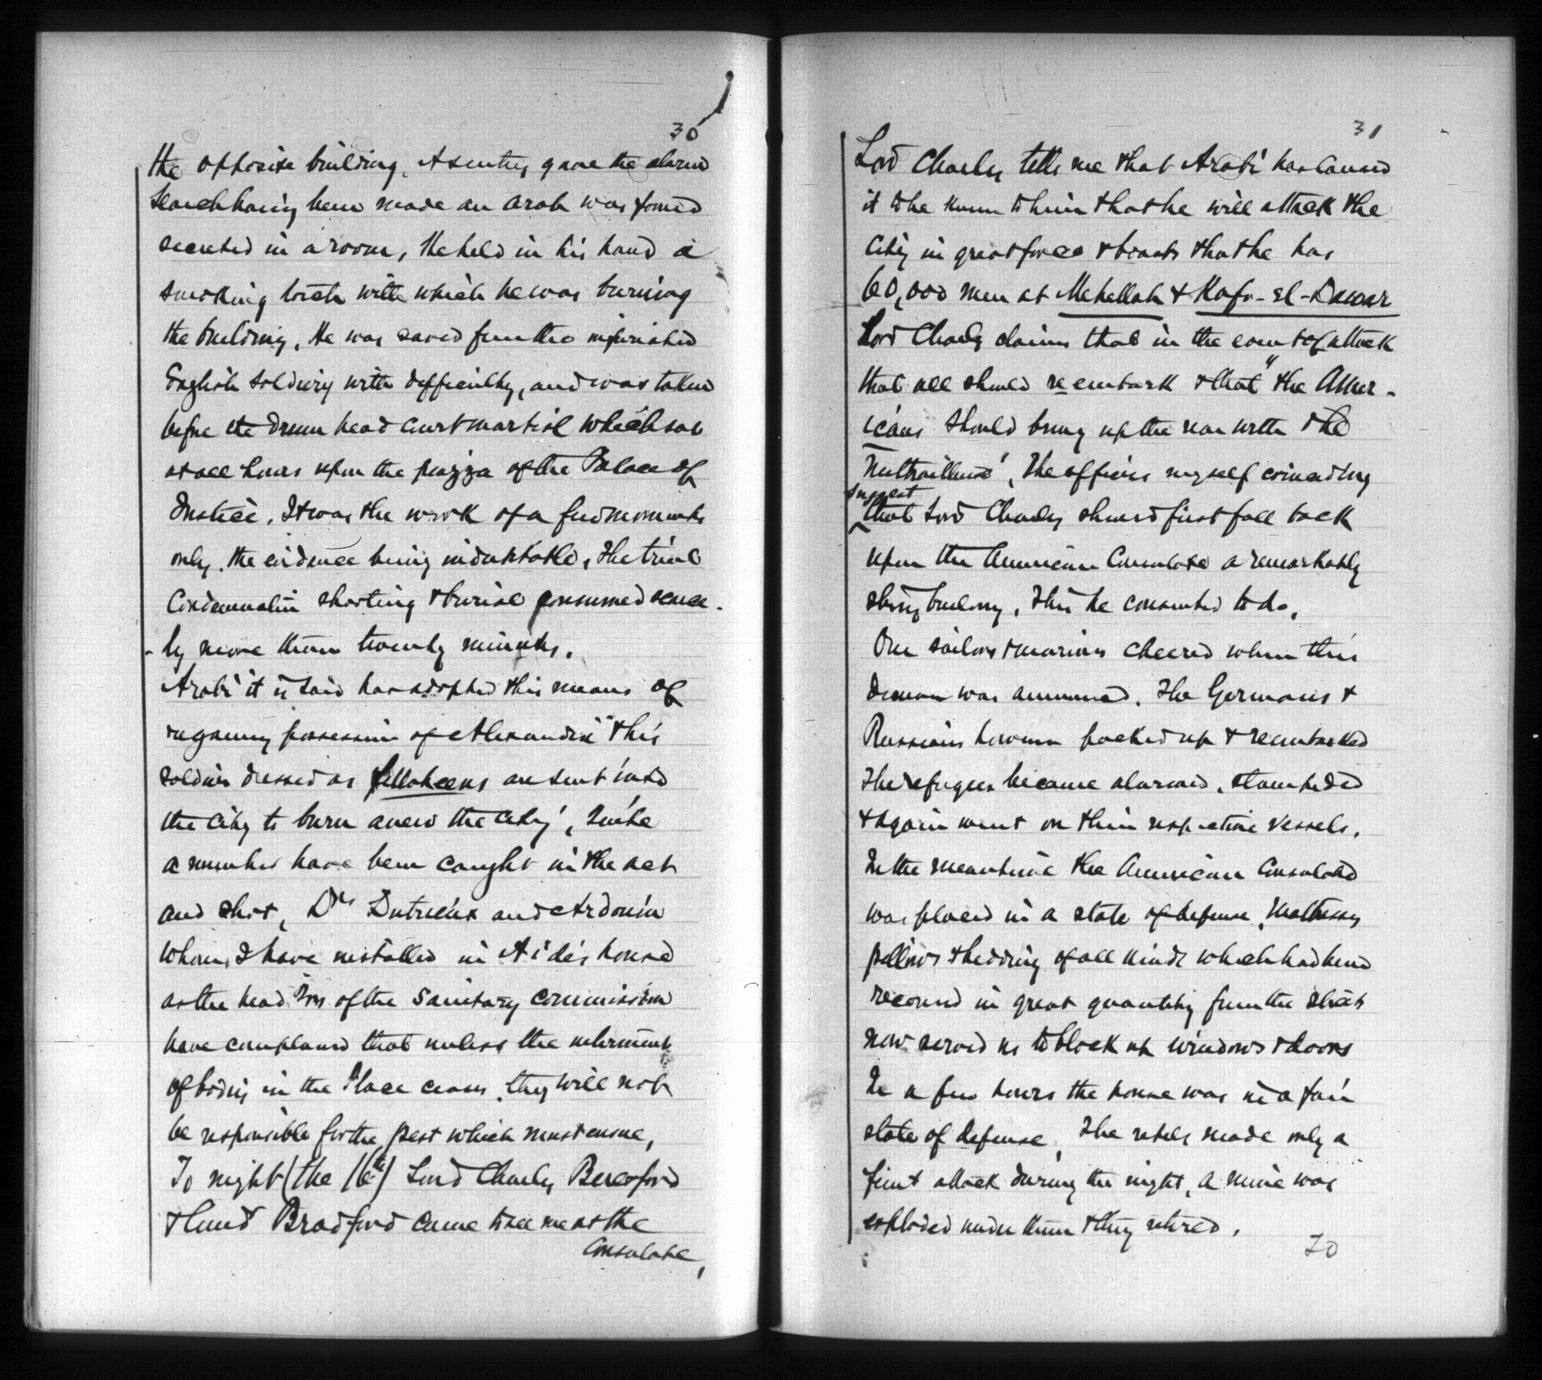 30
the opposite building. A sentry gave the alarm
Search having been made an arab was found
secreted in a room, He held in his hand a
smoking torch with which he was burning
the building. He was saved from the infuriated
English soldiery with difficulty, and was taken
before the drum head court martial which sat
at all hours upon the piazza of the Palace of
Justice. It was the work of a few moments
only. the evidence being indubitable, The trial
Condemnation shooting & burial consumed scarce-
-ly more than twenty minutes.
Arabi it is said has adopted this means of
regaining possession of Alexandria " & his
soldiers dressed as fellaheens are sent into
the city to burn anew the city', Quite
a number have been caught in the act
and shot, Drs Dutrieux and Ardouin
whom I have installed in Aide's house
as the head of the Sanitary Commission
have complained that unless the interment
of bodies in the Place cease, they will not
be responsible for the pest which must ensue,
To night (the 16th) Lord Charles Beresford
& Lieut Bradford came to see me at the
Consulate,
31
Lord Charles tells me that Arabi has caused
it to be known to him that he will attack the
City in great force & boasts that he has
60,000 men at Mehallah & Kafr-el-Dawar
Lord Charles claims that in the event of attack
that all should re embark & that " the Amer-
icans should bring up the rear with the
Mitrailleuse', The officers myself coinciding
suggest
that Lord Charles should first fall back
upon the American Consulate a remarkably
strong building, This he consented to do,
Our sailors & marines cheered when this
decision was announced. The Germans &
Russians however packed up & reembarked
The refugees became alarmed, stampeded
& again went on their respective vessels.
In the meantime the American Consulate
was placed in a state of defense, Mattresses
pillows & bedding of all kinds which had been
recovered in great quantity from the streets
now served us to block up windows & doors
In a few hours the house was in a fair
state of defense, The rebels made only a
feint attack during the night, a mine was
exploded under them & they retired.
20